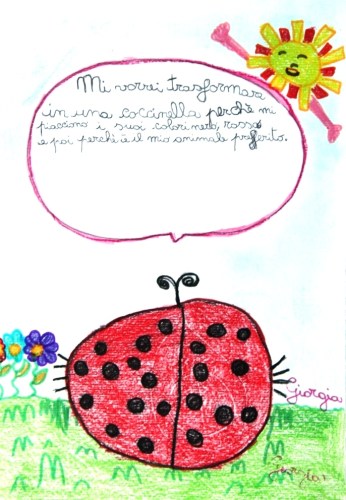 Mi vorrei trasformare
in una coccinella perchè mi
piacciono i suoi colori nero, rosso
e poi perchè è il mio animale preferito.
Giorgia